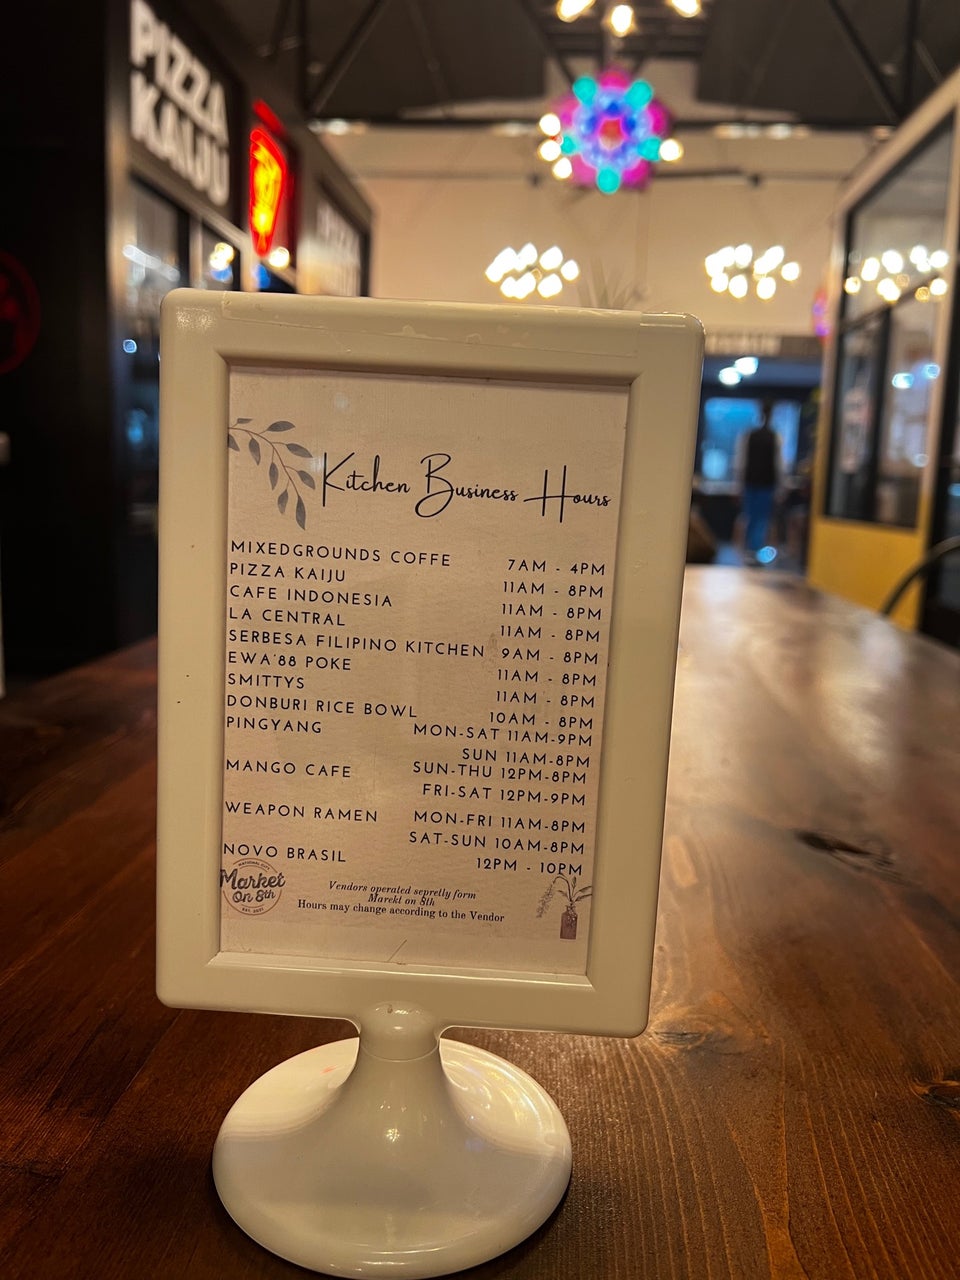 PIZZA
KAIJU
Kitchen Business Hours
MIXEDGROUNDS COFFE 7AM - 4PM
PIZZA KAIJU 11AM - 8PM
CAFE INDONESIA 11AM - 8PM
LA CENTRAL 11AM - 8PM
SERBESA FILIPINO KITCHEN 9AM - 8PM
EWA'88 POKE 11AM - 8PM
SMITTYS 11AM - 8PM
DONBURI RICE BOWL 10AM - 8PM
PINGYANG MON-SAT 11AM-9PM
SUN 11AM-8PM
MANGO CAFE SUN-THU 12PM-8PM
FRI-SAT 12PM-9PM
WEAPON RAMEN MON-FRI 11AM-8PM
SAT-SUN 10AM-8PM
NOVO BRASIL 12PM - 10PM
NATIONAL CITY
Market
On 8th
EST. 2021
Vendors operated sepretly form
Marekt on 8th
Hours may change according to the Vendor